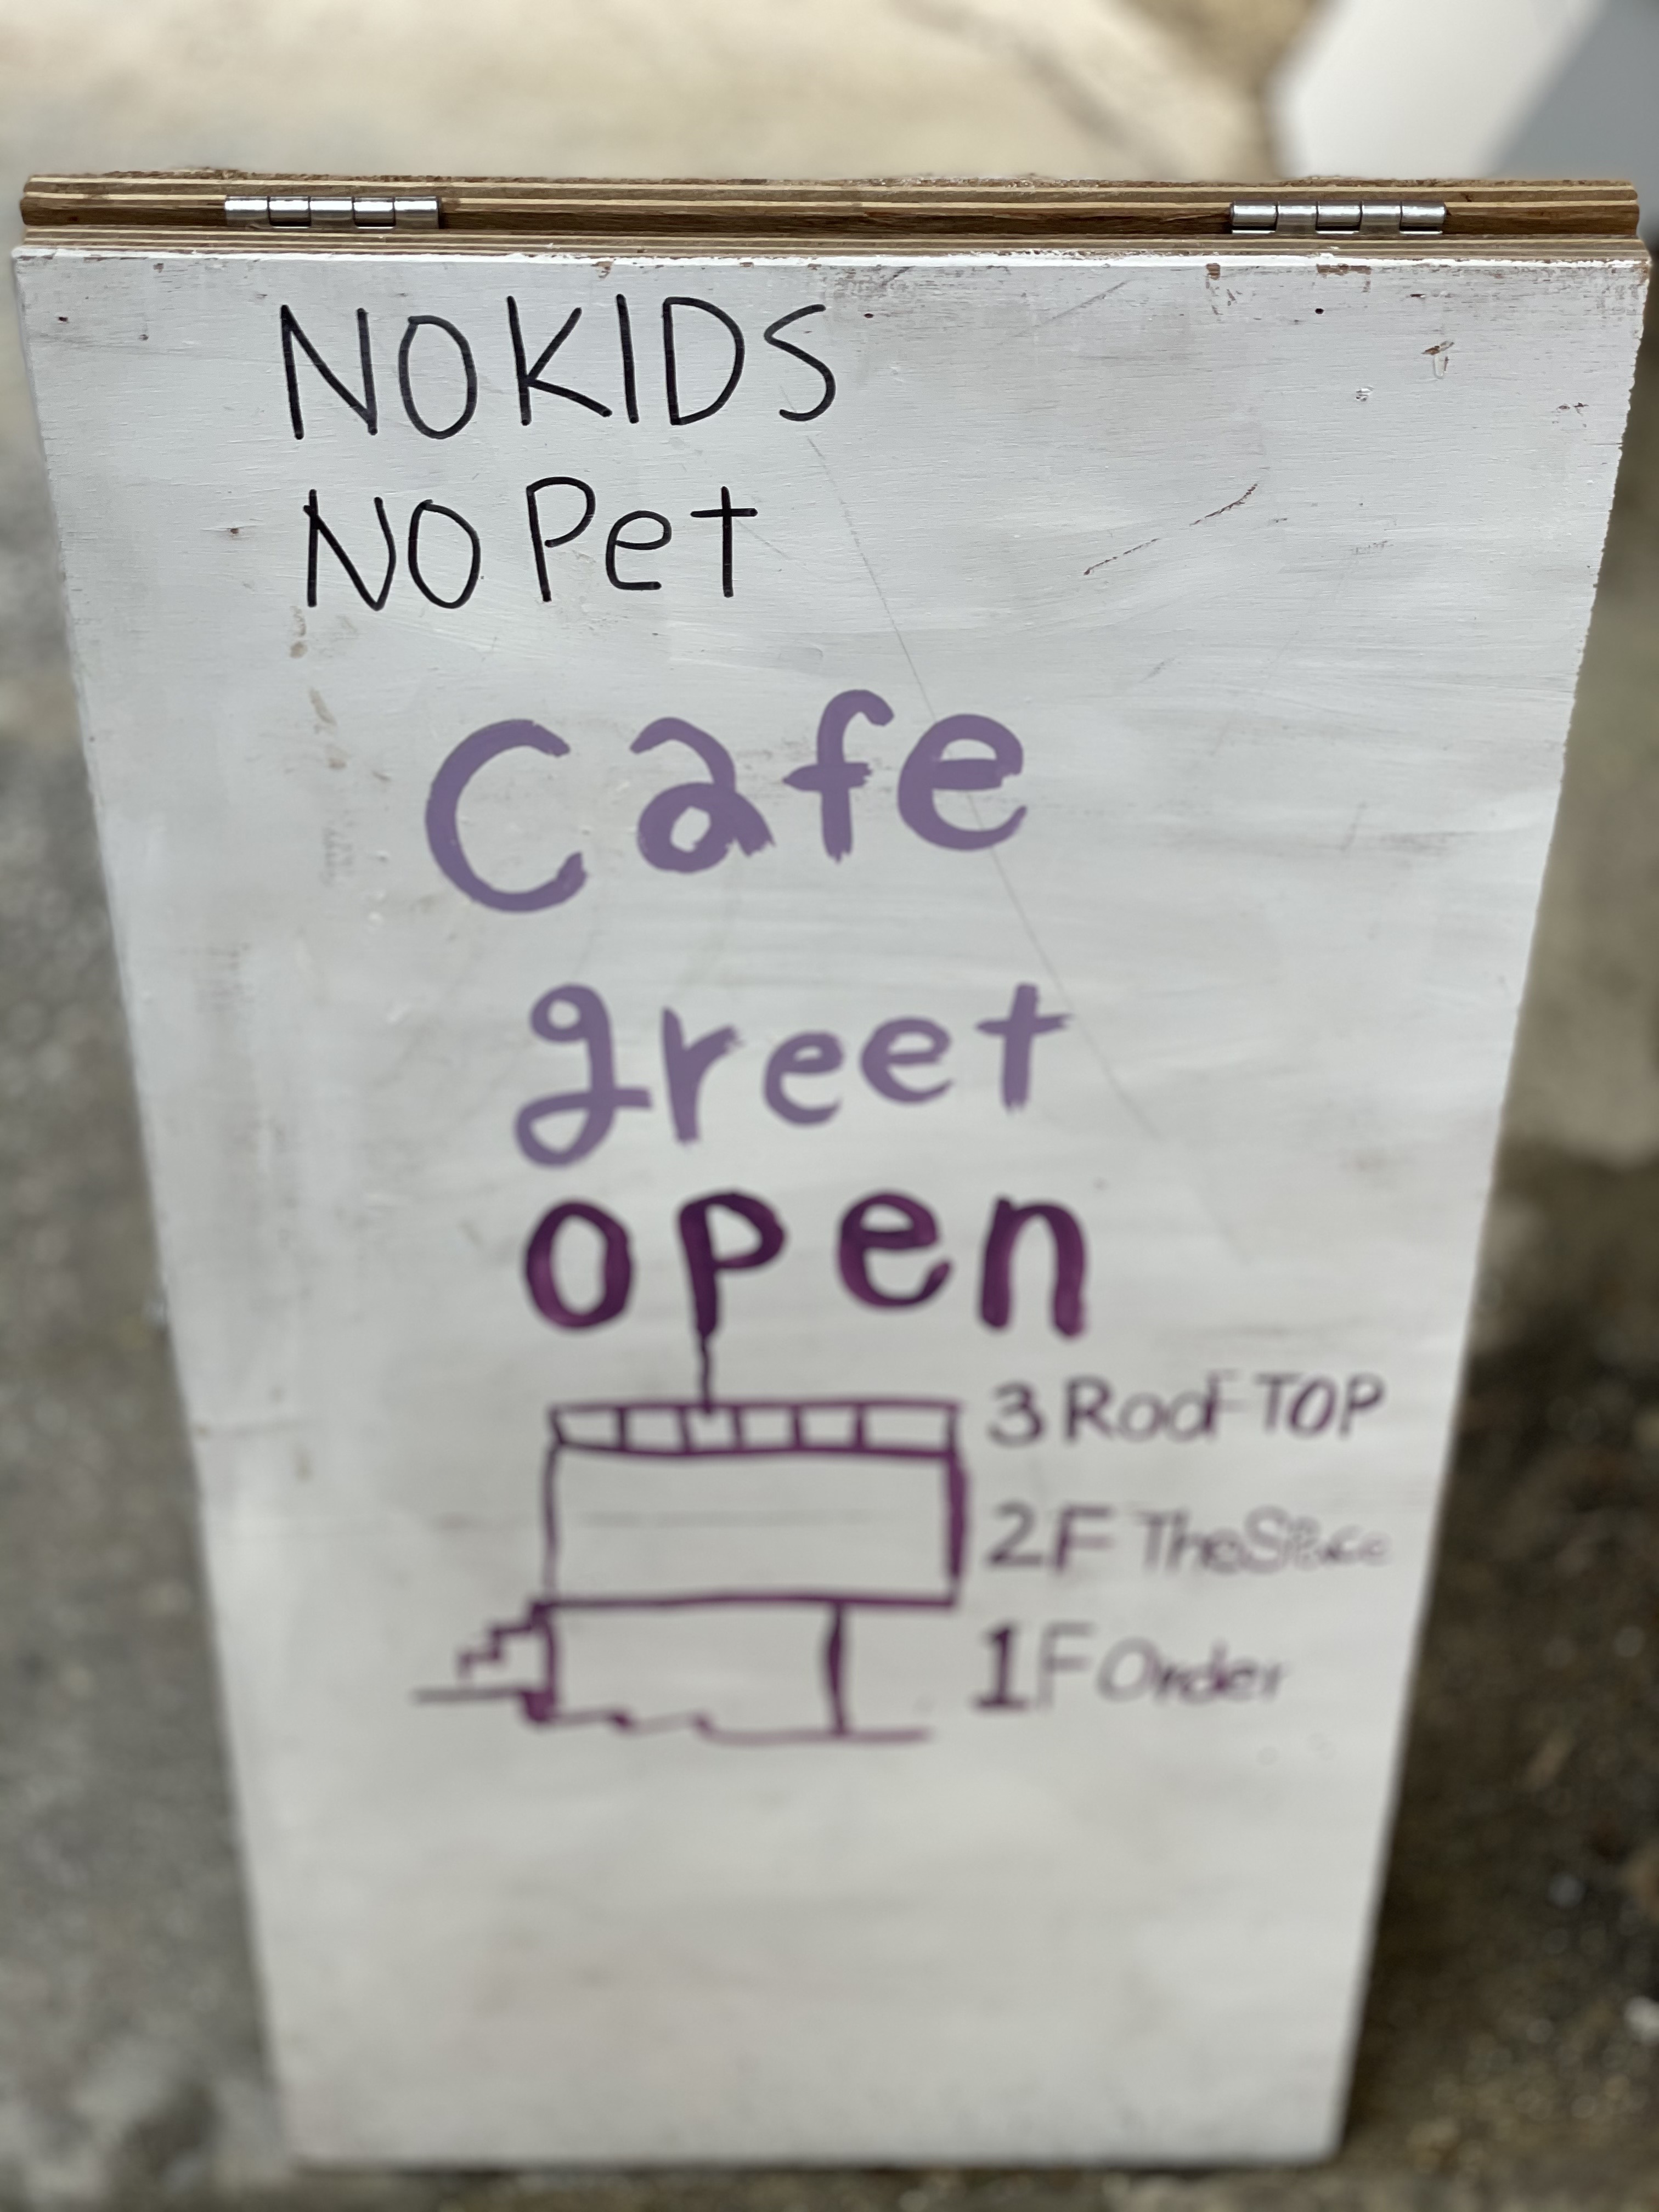 NO KIDS
NO Pet
Cafe
greet
open
3 RooF TOP
2F The Space
1F Order